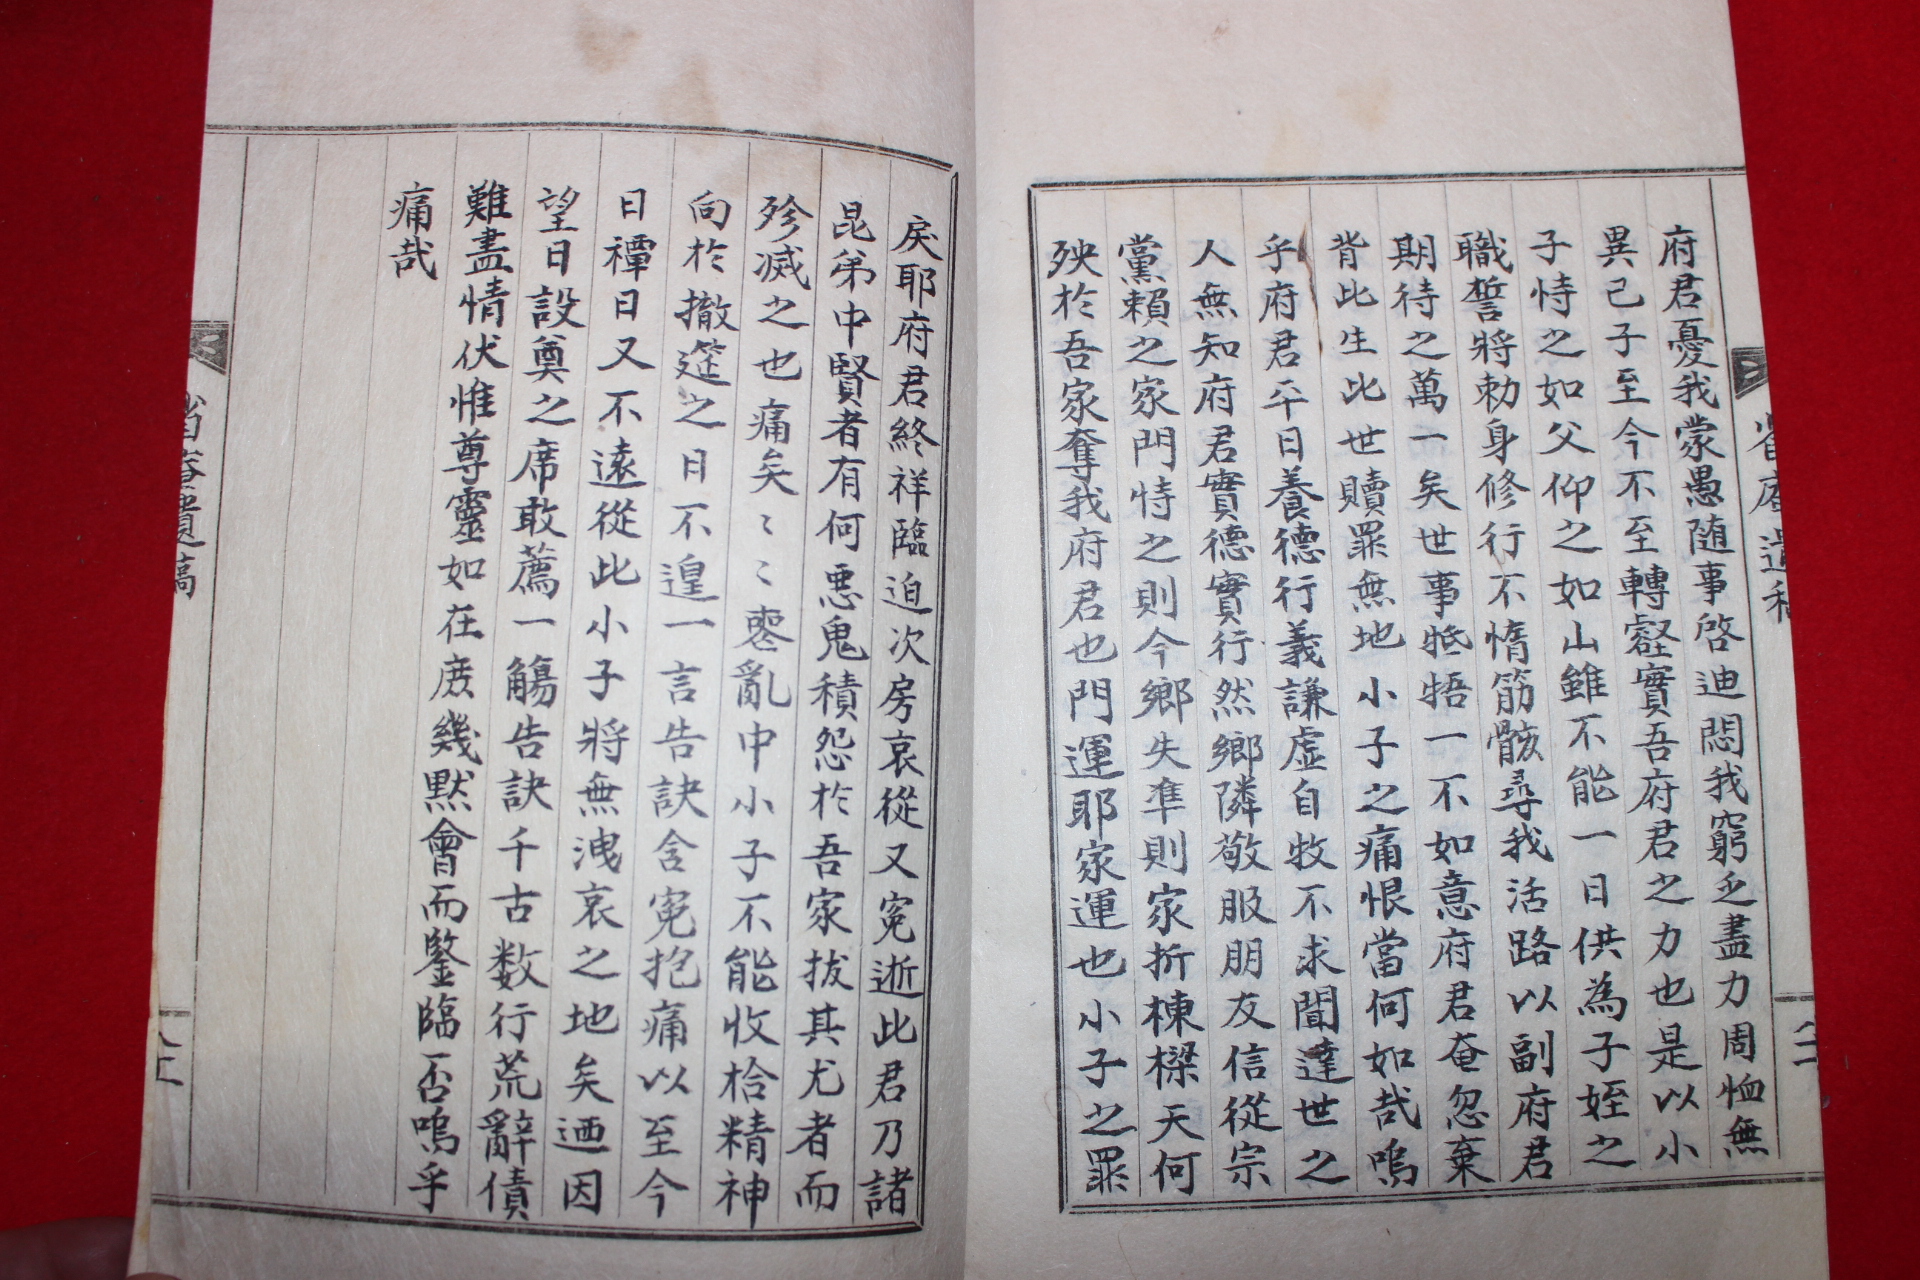 府君憂我蒙愚随事啓迪悶我窮乏盡力周恤無
異己子至今不至轉壑實吾府君之力也是以小
子恃之如父仰之如山雖不能一日供為子姪之
職誓將勅身修行不惰筋骸尋我活路以副府君
期待之萬一矣世事牴牾一不如意府君奄忽棄
背此生比世贖罪無地小子之痛恨當何如哉嗚
乎府君平日養德行義謙虛自牧不求聞達世之
人無知府君實德實行然鄉隣敬服朋友信從宗
黨賴之家門恃之則今鄉失準則家折棟樑天何
殃於吾家奪我府君也門運耶家運也小子之罪
戾耶府君終祥臨迫次房哀從又寃逝此君乃諸
昆弟中賢者有何悪鬼積怨於吾家拔其尤者而
殄滅之也痛矣〻〻亂中小子不能收拾精神
向於撤筵之日不遑一言告訣含寃抱痛以至今
日禫日又不遠從此小子將無洩哀之地矣迺因
望日設奠之席敢薦一觴告訣千古数行荒辭債
難盡情伏惟尊靈如在庻幾默會而鑒臨否嗚乎
痛哉
遺稿